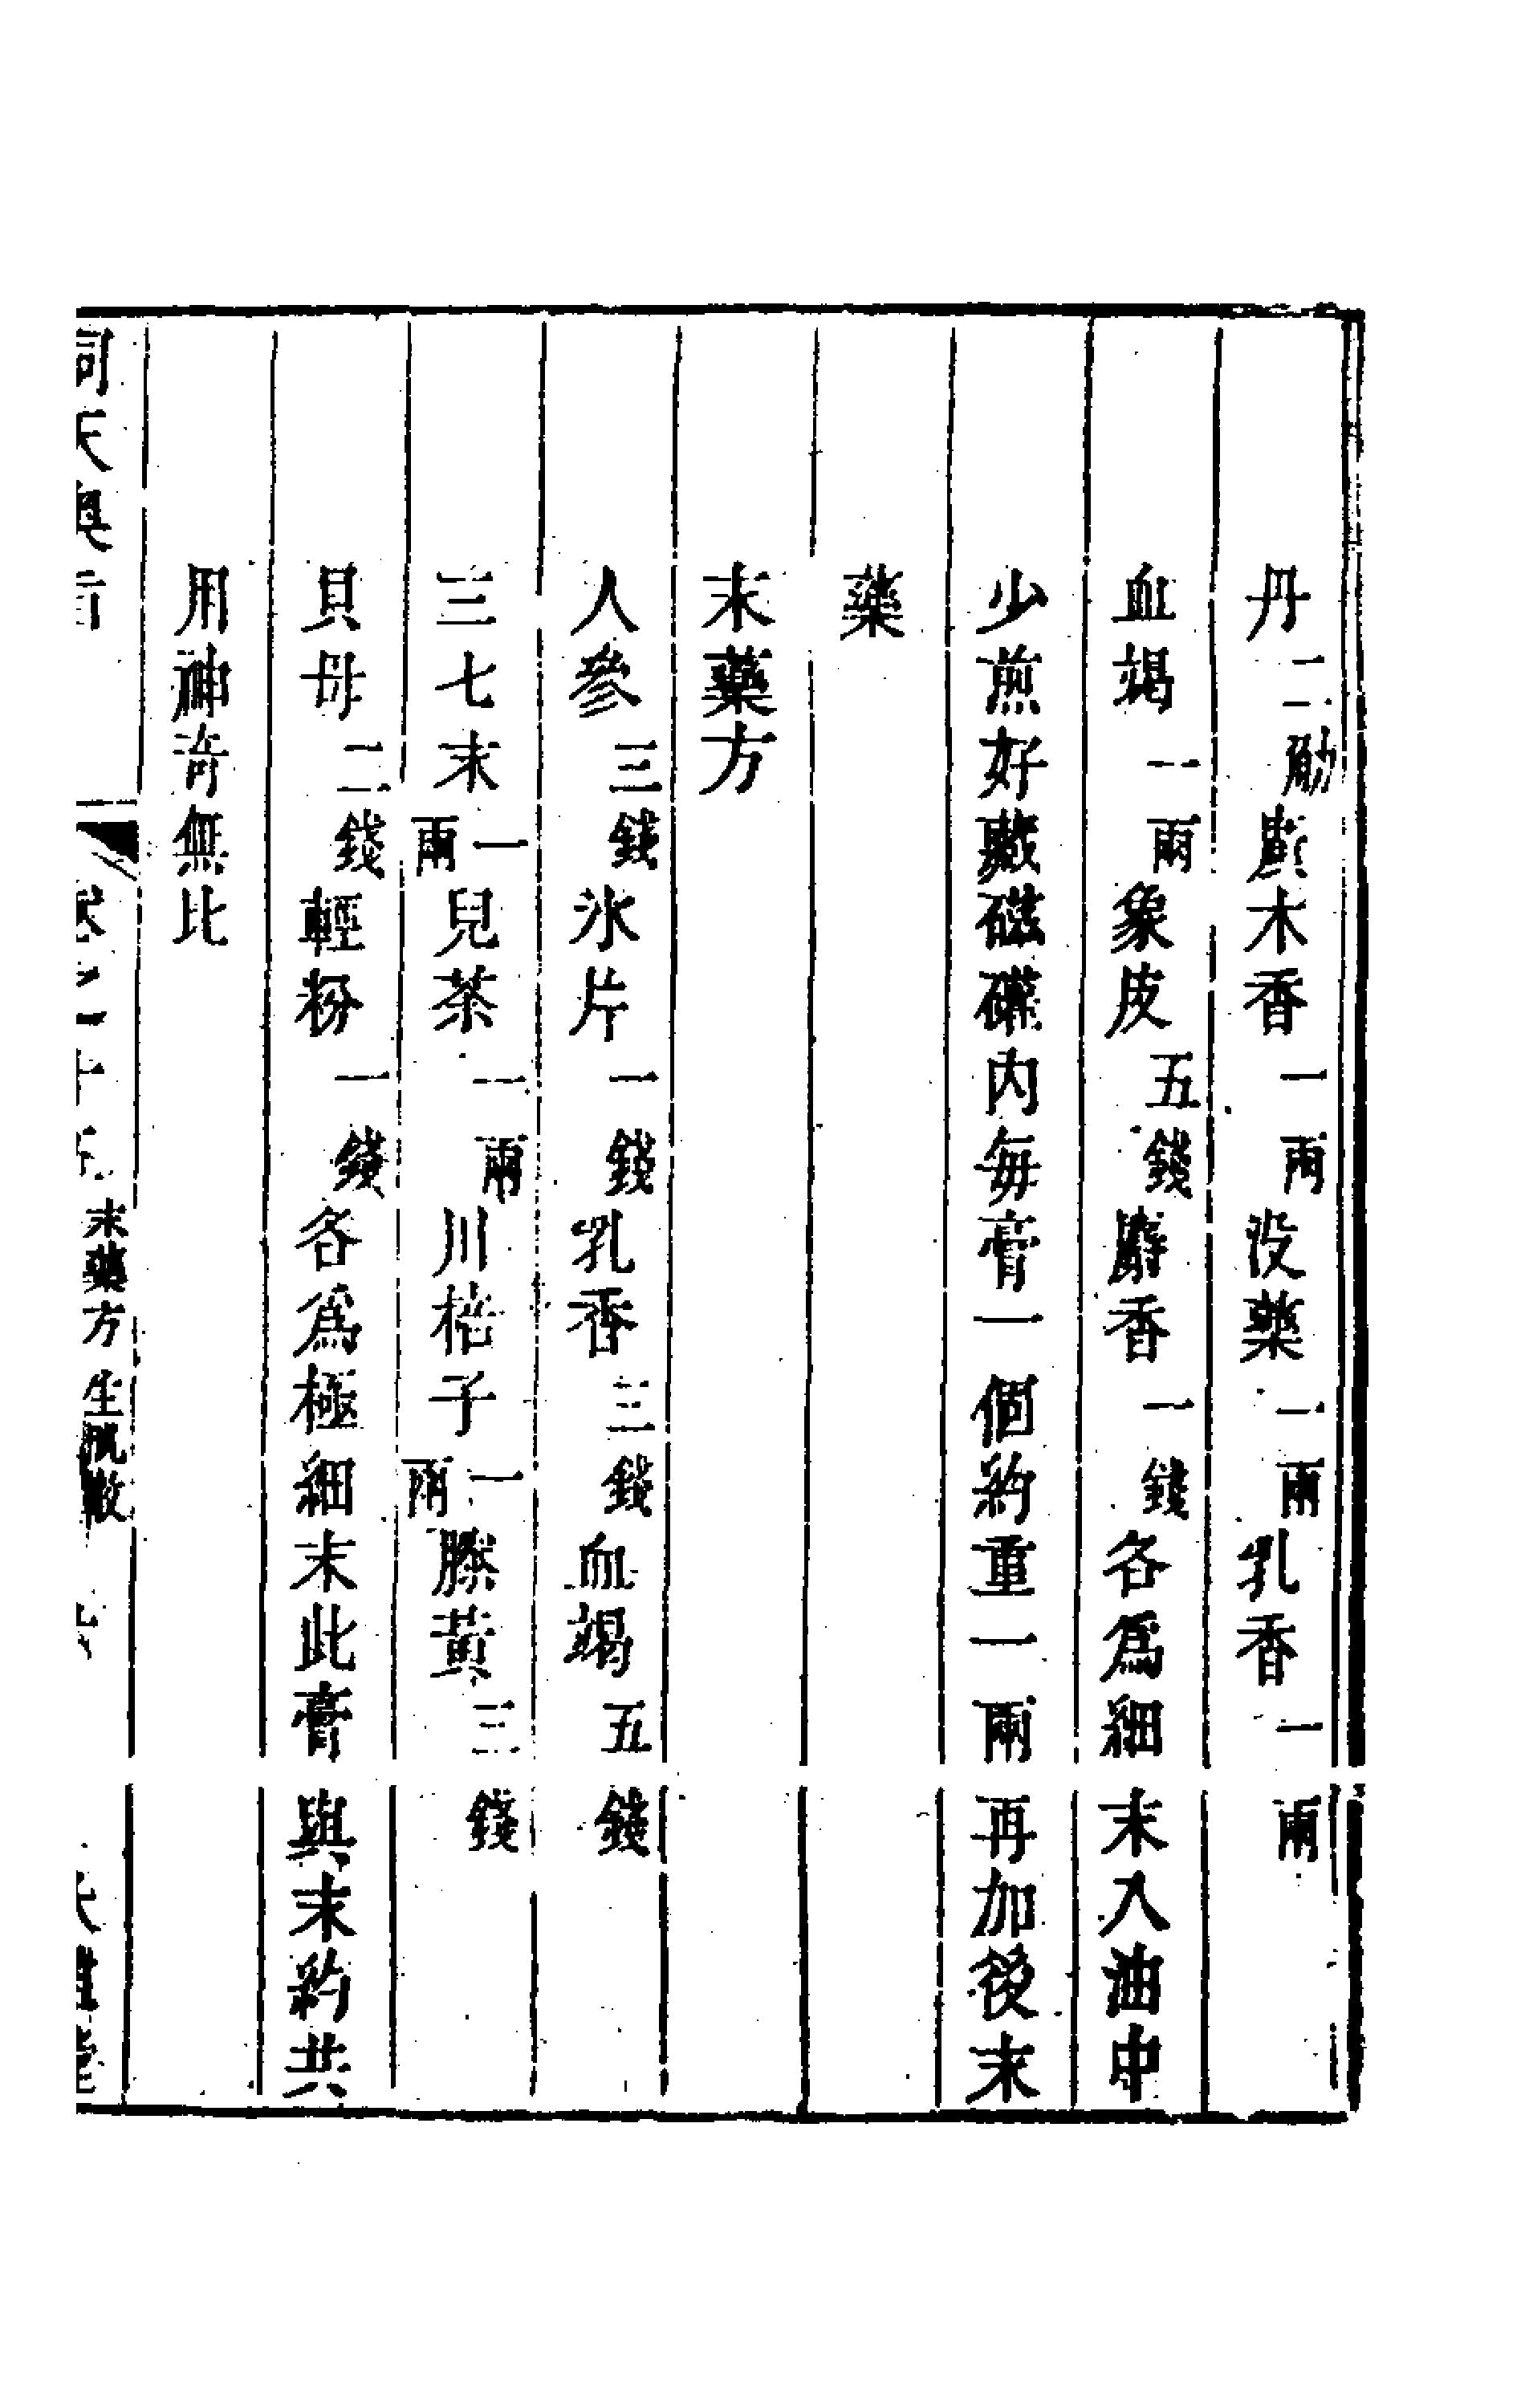 丹二觔廣木香一兩没藥一兩乳香一兩
血竭一兩象皮五錢麝香一錢各爲細末入油中
少煎好藏磁礶内每膏一個約重一兩再加後末
藥
末藥方
人參三錢氷片一錢乳香三錢血竭五錢
三七末一兩兒茶一兩川梧子一兩滕黃三錢
貝母二錢輕粉一錢各爲極細末此膏與末約共
用神奇無比
末藥方 生肌散